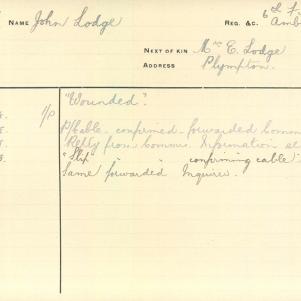 NAME John Lodge
REG. &C. 6th F
Amb
NEXT OF KIN Mrs E. Lodge
ADDRESS Plympton.
"Wounded".
P/Cable confirmed forwarded
Reply from Comms. Information
"Slip " " confirming cable".
Same forwarded Inquirer.